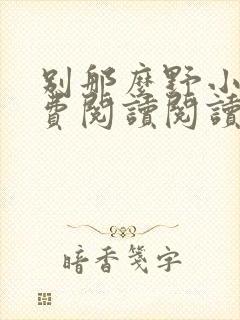 别那麽野小
費閱讀閱讀
暗香箋字